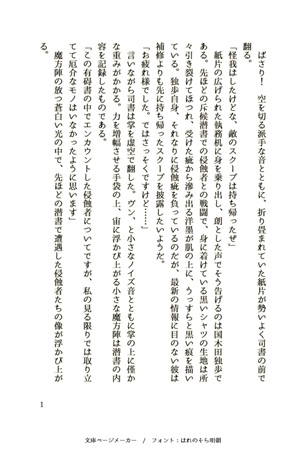 ばさり！　空を切る派手な音とともに、折り畳まれていた紙片が勢いよく司書の前で
翻る。
「怪我はしたけどな、敵のスクープは持ち帰ったぜ」
　紙片の広げられた執務机に身を乗り出し、朗とした声でそう告げるのは国木田独歩で
ある。先ほどの斥候潜書での侵蝕者との戦闘で、身に着けている黒いシャツの生地は所
々引き裂けてほつれ、受けた疵から滲み出る洋墨が肌の上に、うっすらと黒い痕を描い
ている。独歩自身、それなりに侵蝕疵を負っているのだが、最新の情報に目のない彼は
補修よりも先に持ち帰ったスクープを披露したいようだ。
「お疲れ様でした。ではさっそくですけど……」
　言いながら司書は掌を虚空で翻した。ヴン、と小さなノイズ音とともに掌の上に僅か
な重みがかかる。力を増幅させる手袋の上、宙に浮かび上がる小さな魔方陣は潜書の内
容を記録したものである。
「この有碍書の中でエンカウントした侵蝕者についてですが、私の見る限りでは取り立
てて厄介なモノはいなかったように思います」
　魔方陣の放つ蒼白い光の中で、先ほどの潜書で遭遇した侵蝕者たちの像が浮かび上が
る。
1
文庫ページメーカー　/　フォント：はれのそら明朝